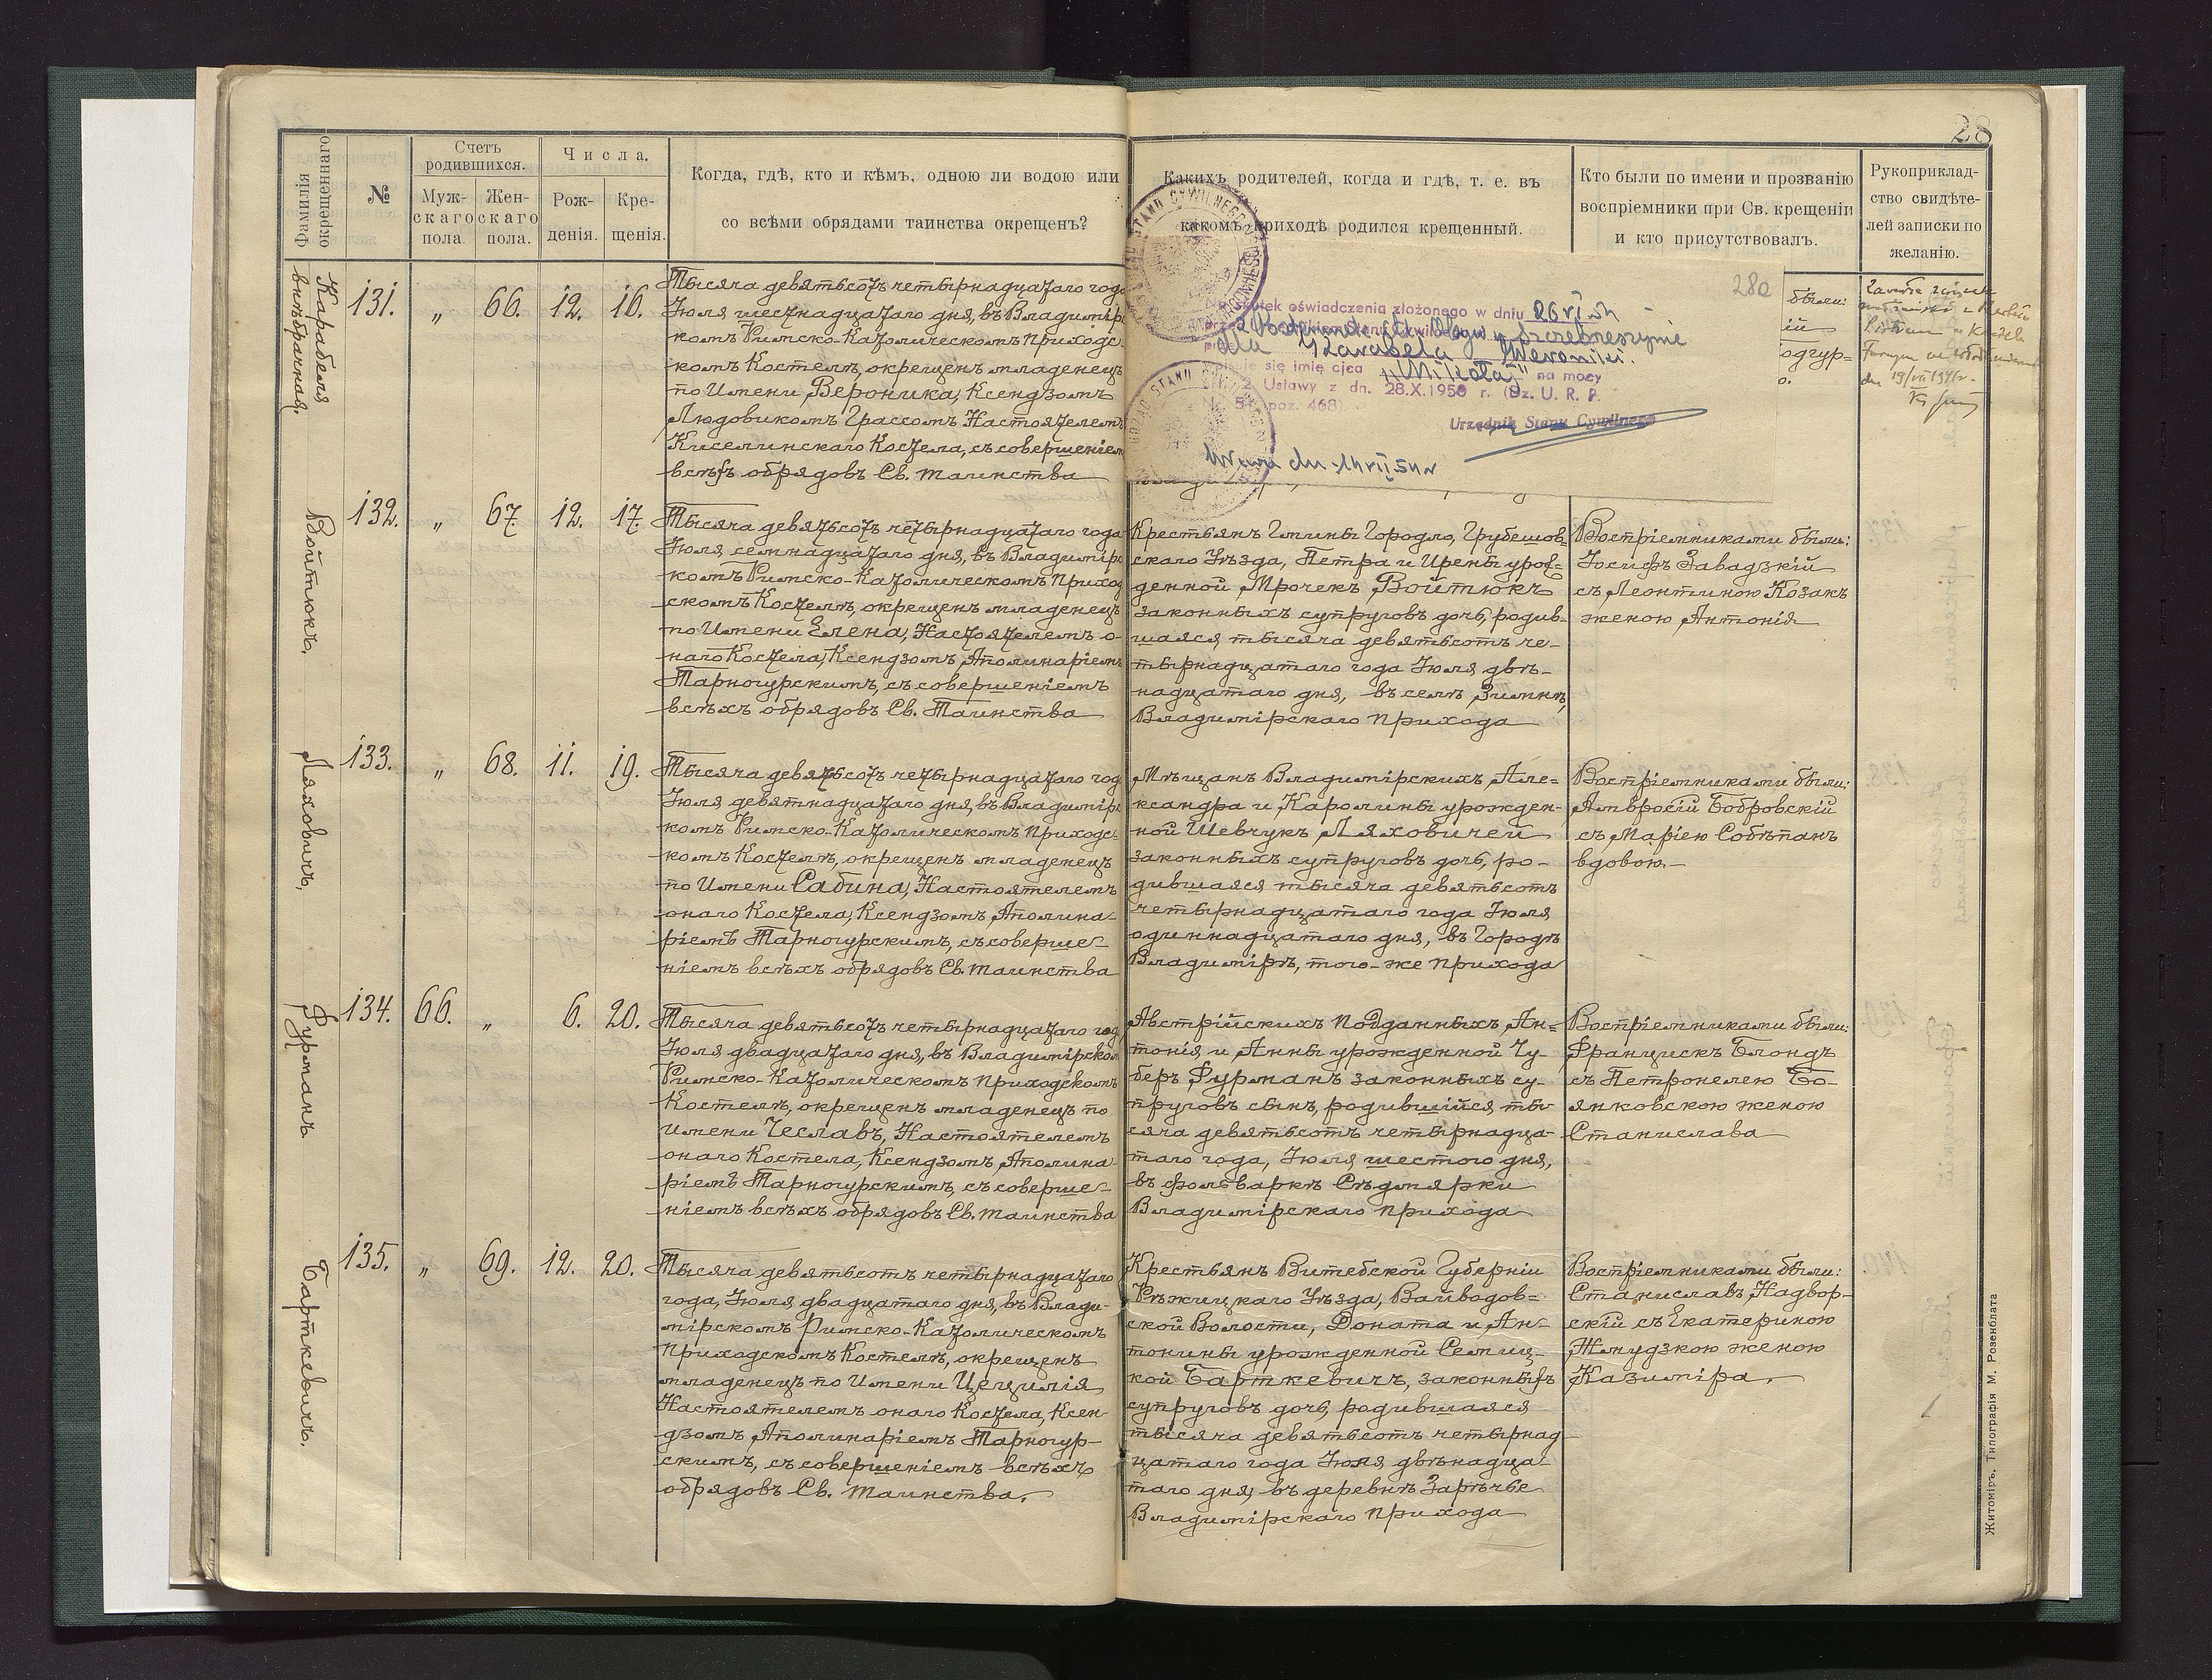 28
Фамилія окрещеннаго
№
Счетъ родившихся.
Мужскаго пола.
Женскаго пола.
Числа.
Рожденія.
Крещенія.
Когда, гдѣ, кто и кѣмъ, одною ли водою или
со всѣми обрядами таинства окрещенъ?
Какихъ родителей, когда и гдѣ, т. е. въ
какомъ приходѣ родился крещенный.
Кто были по имени и прозванію
воспріемники при Св. крещеніи
и кто присутствовалъ.
Рукоприклад-
ство свидѣте-
лей записки по
желанію.
Карабеля
внѣбрачная.
131. " 66. 12. 16.
Тысяча девятьсотъ четырнадцатаго года
Іюля шестнадцатаго дня, въ Владимірс
комъ Римско-Католическомъ Приходс
комъ Костелѣ, окрещенъ младенецъ
по Имени Вероника, Ксендзомъ
Людовикомъ Грассомъ Настоятелемъ
Киселинскаго Костела, съ совершеніем
всѣхъ обрядовъ Св. таинства
28a
Na skutek oświadczenia złożonego w dniu
w Szczebrzeszynie
dla Karabela Weroniki.
się imię ojca "Mikołaj" na mocy
Ustawy z dn. 28.X.1950 r. (Dz. U. R. P.
poz. 468)
Urzędnik Stanu Cywilnego
были:
ій
одгур=
Войтюкъ.
132. " 67. 12. 17.
Тысяча девятьсотъ четырнадцатаго года
Іюля семнадцатаго дня, въ Владимірс
комъ Римско-Католическомъ Приход
скомъ Костелѣ, окрещенъ младенецъ
по Имени Елена, Настоятелемъ о-
наго Костела, Ксендзомъ Аполинаріемъ
Тарногурскимъ, съ совершеніемъ
всѣхъ обрядовъ Св. Таинства
Крестьянъ Гмины Городло, Грубешов=
скаго Уѣзда, Петра и Ирены урож=
денной Мрочекъ Войтюкъ
законныхъ супруговъ дочь, родив-
шаяся тысяча девятьсотъ че-
тырнадцатаго года Іюля двѣ-
надцатаго дня, въ селѣ Зимнѣ,
Владимірскаго прихода
Воспріемниками были:
Іосифъ Завадзкій
съ Леонтиною Козакъ
женою Антонія
Ляховичъ,
133. " 68. 11. 19.
Тысяча девятьсотъ четырнадцатаго год
Іюля девятнадцатаго дня, въ Владимірс
комъ Римско-Католическомъ Приходс
комъ Костелѣ, окрещенъ младенецъ
по Имени Сабина, Настоятелемъ
онаго Костела, Ксендзомъ Аполина-
ріемъ Тарногурскимъ, съ соверше-
ніемъ всѣхъ обрядовъ Св. таинства
Мѣщанъ Владимірскихъ, Але=
ксандра и Каролины урожден-
ной Шевчукъ Ляховичей
законныхъ супруговъ дочь, ро-
дившаяся тысяча девятьсотъ
четырнадцатаго года Іюля
одиннадцатаго дня, въ Городѣ
Владимірѣ, того-же прихода
Воспріемниками были:
Амвросій Бобровскій
съ Маріею Собѣпанъ
вдовою.
Фурманъ
134. 66. " 6. 20.
Тысяча девятьсотъ четырнадцатаго год
Іюля двадцатаго дня, въ Владимірском
Римско-Католическомъ приходскомъ
Костелѣ, окрещенъ младенецъ по
имени Чеславъ, Настоятелемъ
онаго Костела, Ксендзомъ Аполина
ріемъ Тарногурскимъ, съ соверше-
ніемъ всѣхъ обрядовъ Св. таинства
Австрійскихъ подданныхъ, Ан=
тонія и Анны урожденной Гу-
беръ Фурманъ законныхъ су-
пруговъ сынъ, родившійся ты-
сяча девятьсотъ четырнадца-
таго года, Іюля шестого дня,
въ фольваркѣ Сѣдмярки
Владимірскаго прихода
Воспріемниками были:
Францискъ Блондъ
съ Петронелею Бо-
янковскою женою
Станислава
Барткевичъ.
135. " 69. 12. 20.
Тысяча девятьсотъ четырнадцатаго
года, Іюля двадцатаго дня, въ Влади-
мірскомъ Римско-Католическомъ
приходскомъ Костелѣ, окрещенъ
младенецъ по Имени Цецилія
Настоятелемъ онаго Костела, Ксен-
дзомъ Аполинаріемъ Тарногур-
скимъ, съ совершеніемъ всѣхъ
обрядовъ Св. таинства.
Крестьянъ Витебской Губерніи
Рѣжицкаго Уѣзда, Вайводов=
ской Волости, Доната и Ан-
тонины урожденной Семиц-
кой Барткевичъ, законныхъ
супруговъ дочь, родившаяся
тысяча девятьсотъ четырнад
цатаго года Іюля двѣнадца-
таго дня, въ деревнѣ Зарѣчье
Владимірскаго прихода
Воспріемниками были:
Станиславъ Надвор-
скій съ Екатериною
Жмудзкою женою
Казиміра.
Житоміръ. Типографія М. Розенблата